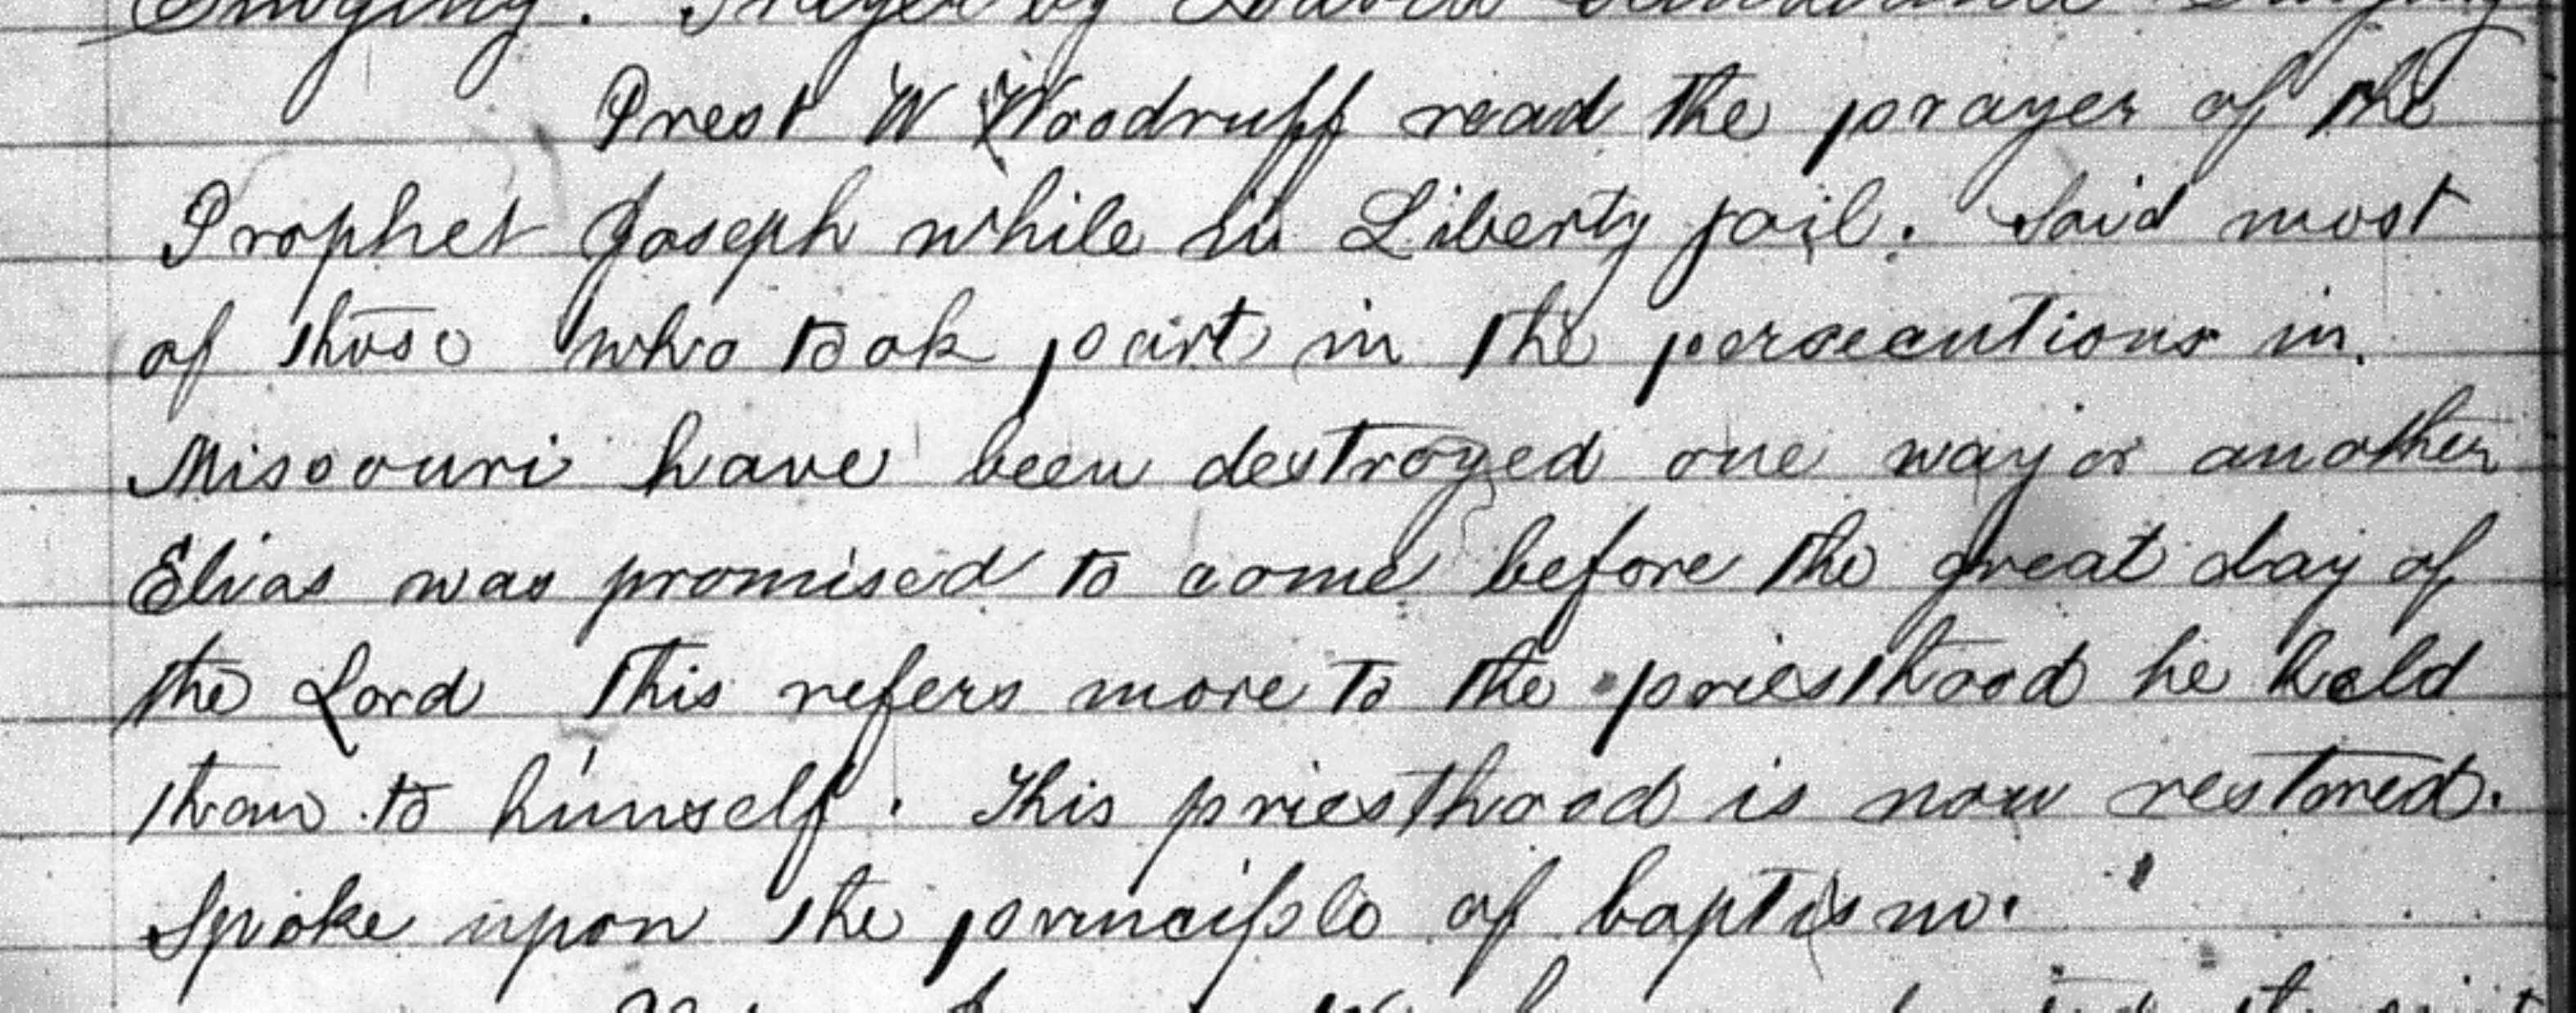 Singing. Prayer by Singing
Prest W Woodruff read the prayer of the
Prophet Joseph while in Liberty jail. Said most
of those who took part in the persecutions in
Missouri have been destroyed one way or another
Elias was promised to come before the great day of
the Lord This refers more to the priesthood he held
than to himself. This priesthood is now restored.
Spoke upon the principle of baptism.